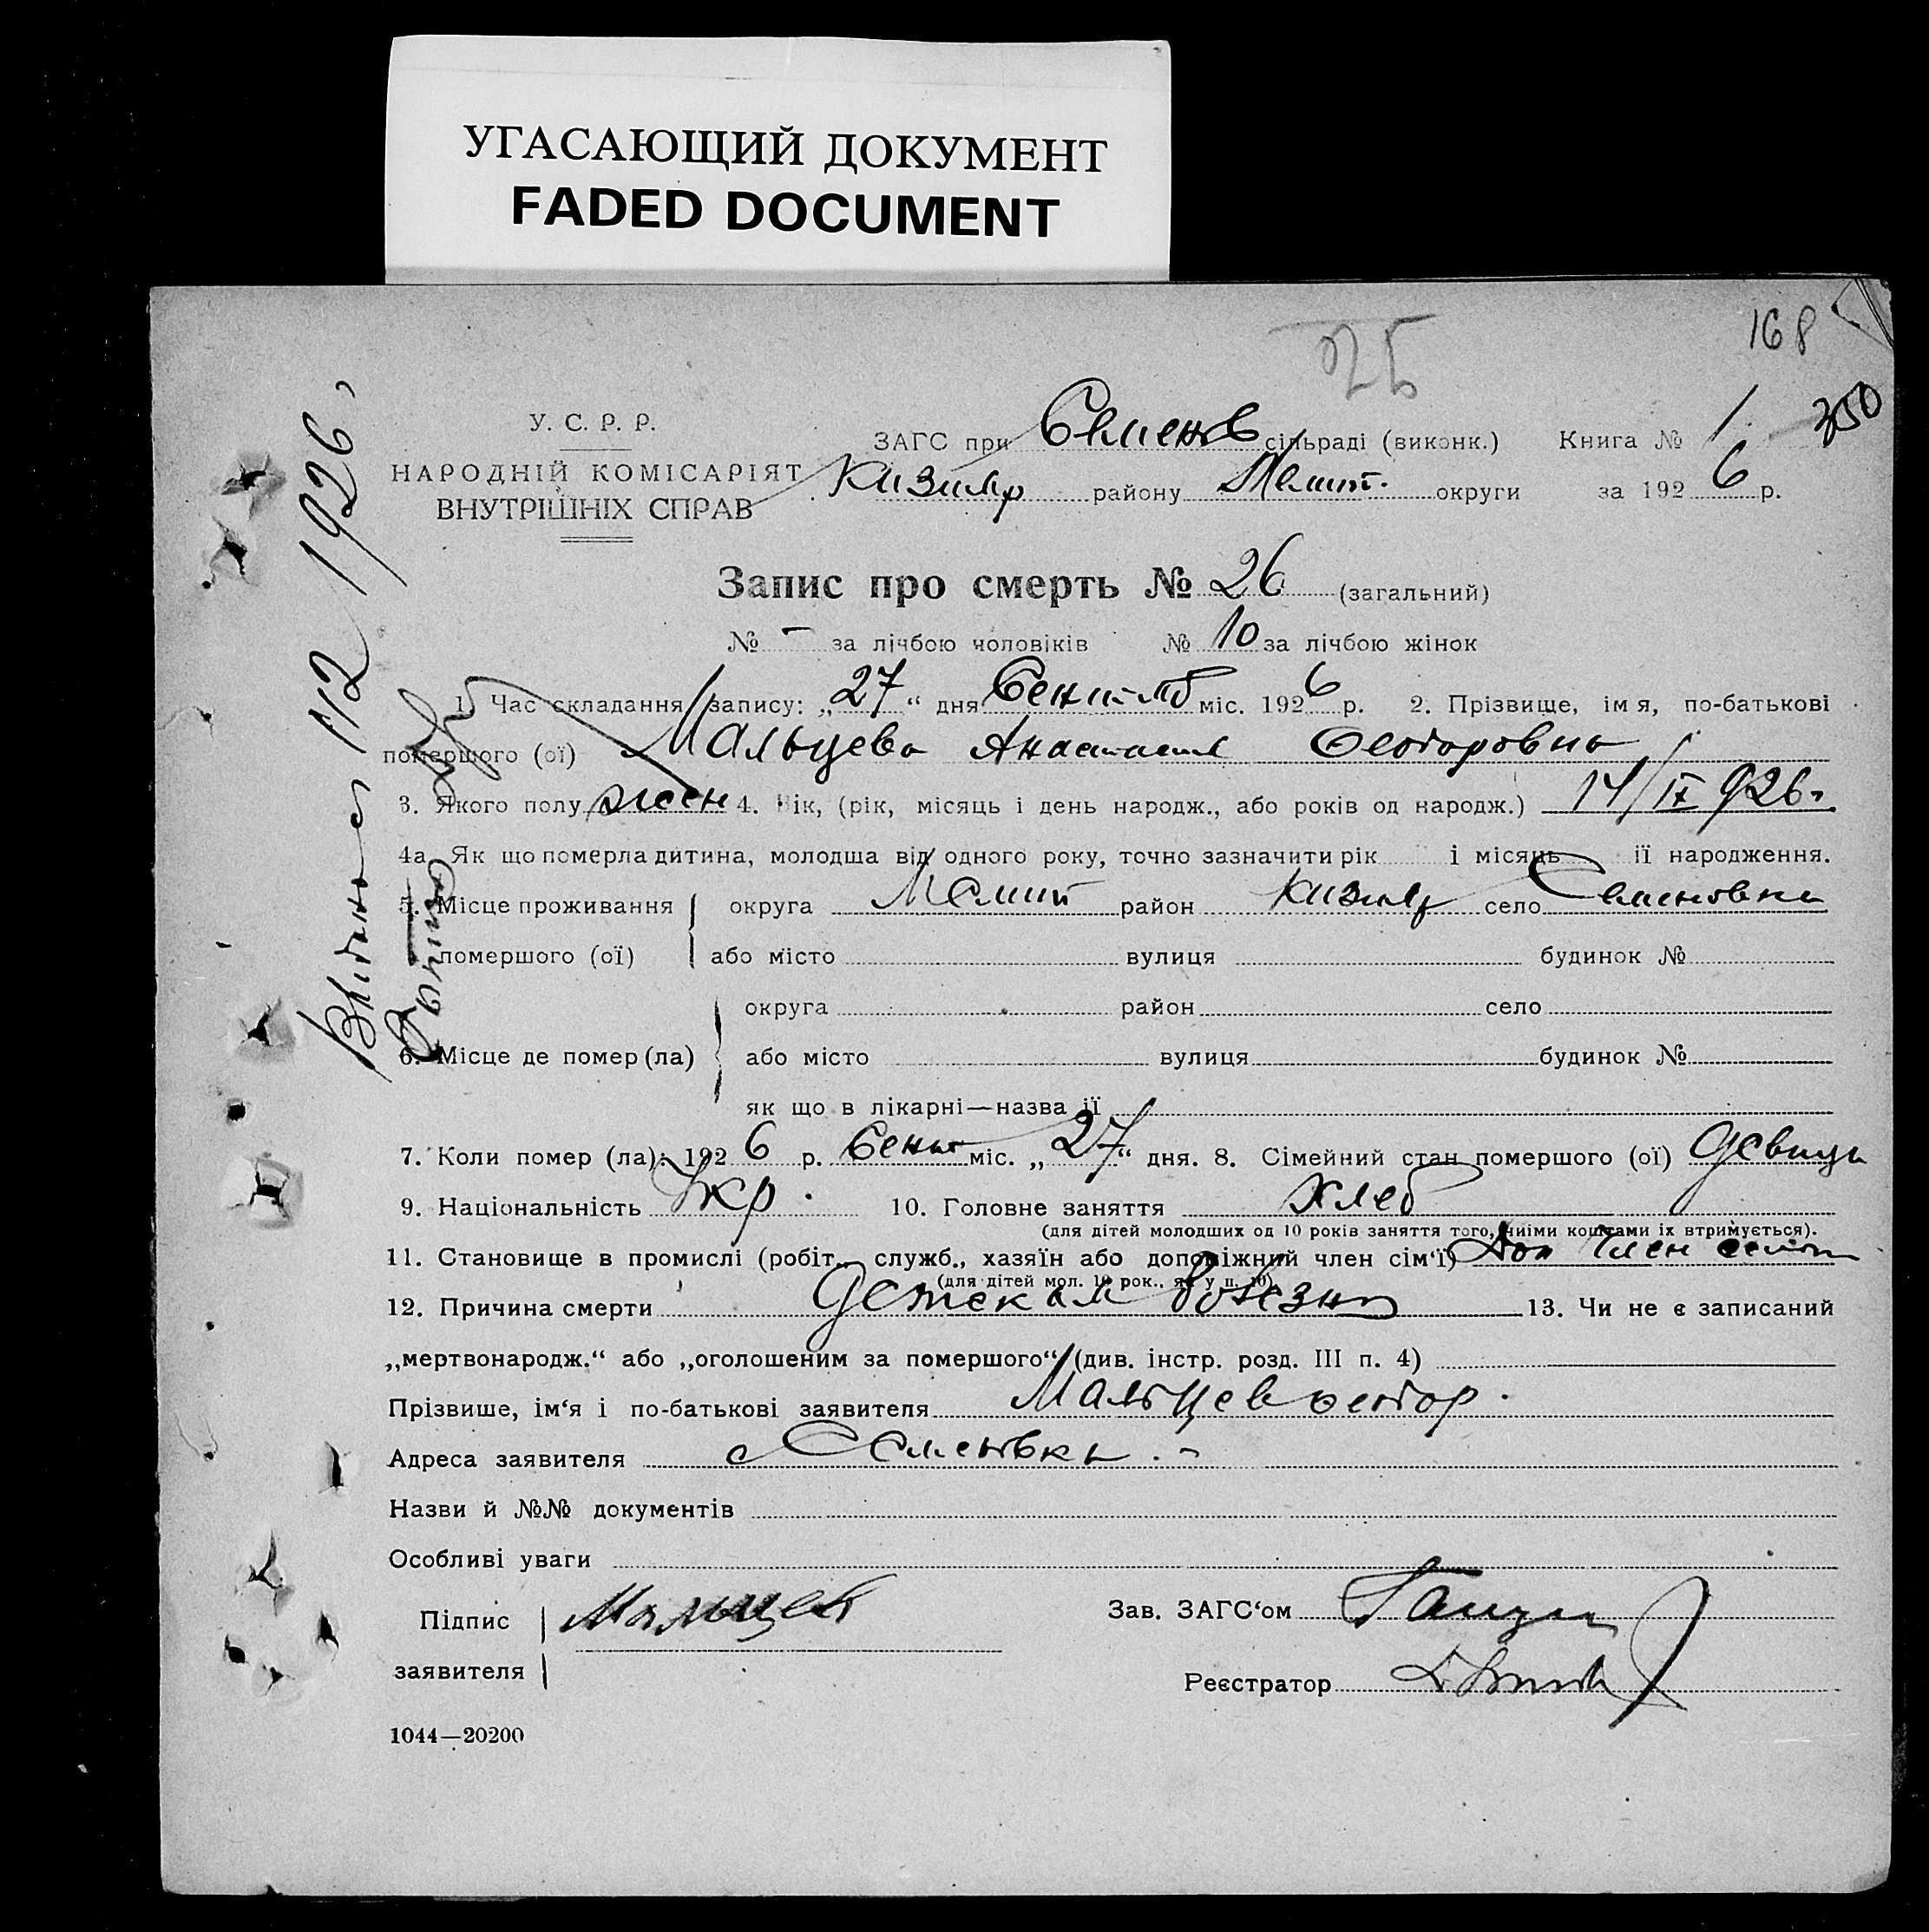 УГАСАЮЩИЙ ДОКУМЕНТ
FADED DOCUMENT
168
350
У. С. Р. Р.
НАРОДНІЙ КОМІСАРІЯТ
ВНУТРІШНІХ СПРАВ
ЗАГС при Семенов сільраді (виконк.) Книга № 1
Кизияр району Меліт. округи за 1926 р.
Запис про смерть № 26 (загальний)
№ - за лічбою чоловіків № 10 за лічбою жінок
1. Час складання запису: „27“ дня міс. 1926 р. 2. Прізвище, імя, по-батькові
помершого (ої) Мальцева Анастасия Феодоровна
3. Якого полу жен 4. Вік, (рік, місяць і день народж., або років од народж.) 14/IX 926 г.
4а. Як що померла дитина, молодша від одного року, точно зазначити рік і місяць її народження.
5. Місце проживання помершого (ої) округа Мелит район Кизияр село Семеновка
або місто вулиця будинок №
6. Місце де помер (ла) округа район село
або місто вулиця будинок №
як що в лікарні—назва її
7. Коли помер (ла): 1926 р. Сент міс. „27“ дня. 8. Сімейний стан помершого (ої) девица
9. Національність Укр. 10. Головне заняття хлеб
(для дітей молодших од 10 років заняття того, чиїми коштами їх втримується).
11. Становище в промислі (робіт., служб., хазяїн або допоміжний член сім‘ї) Доп член
(для дітей мол. 10 рок., як у п. 10)
12. Причина смерти Детская болезнь 13. Чи не є записаний
„мертвонародж.“ або „оголошеним за помершого“ (див. інстр. розд. III п. 4)
Прізвише, ім‘я і по-батькові заявителя Мальцев Феодор.
Адреса заявителя с Семеновка. -
Назви й №№ документів
Особливі уваги
Підпис заявителя Мальцев
Зав. ЗАГС‘ом
Реєстратор
1044—20200
1/12 1926